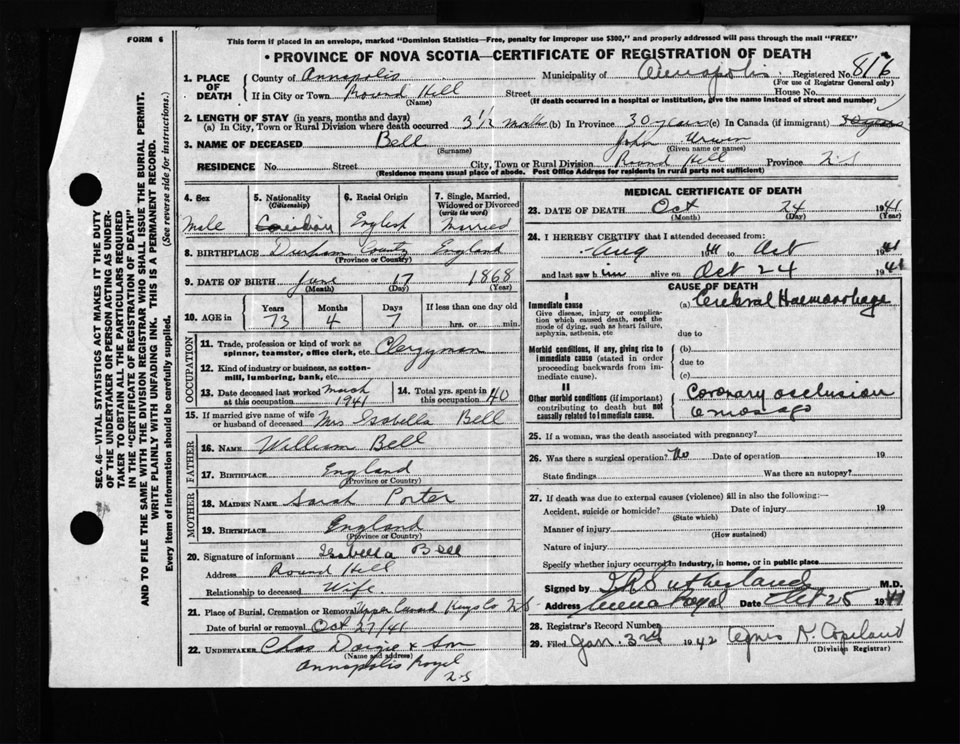 FORM 6
This form if placed in an envelope, marked "Dominion Statistics—Free, penalty for improper use $300," and properly addressed will pass through the mail "FREE"
PROVINCE OF NOVA SCOTIA—CERTIFICATE OF REGISTRATION OF DEATH
1. PLACE OF DEATH County of Annapolis Municipality of Annapolis Registered No. 816
(For use of Registrar General only)
If in City or Town Round Hill Street House No.
(Name) (If death occurred in a hospital or institution, give the name instead of street and number)
2. LENGTH OF STAY (in years, months and days)
(a) In City, Town or Rural Division where death occurred 3 1/2 (b) In Province 30 years (c) In Canada (if immigrant) 30 years
3. NAME OF DECEASED Bell John
(Surname) (Given name or names)
RESIDENCE No. Street City, Town or Rural Division Round Hill Province N.S
(Residence means usual place of abode. Post Office Address for residents in rural parts not sufficient)
4. Sex 5. Nationality (Citizenship) 6. Racial Origin 7. Single, Married, Widowed or Divorced (write the word)
Male Canadian English Married
8. BIRTHPLACE Durham County England
(Province or Country)
9. DATE OF BIRTH June 17 1868
(Month) (Day) (Year)
10. AGE in Years Months Days If less than one day old
73 4 7 hrs. or min.
OCCUPATION
11. Trade, profession or kind of work as spinner, teamster, office clerk, etc. Clergyman
12. Kind of industry or business, as cotton-mill, lumbering, bank, etc.
13. Date deceased last worked at this occupation March 1941 14. Total yrs. spent in this occupation 40
15. If married give name of wife or husband of deceased Mrs Isabella Bell
FATHER
16. NAME William Bell
17. BIRTHPLACE England
(Province or Country)
MOTHER
18. MAIDEN NAME Sarah Porter
19. BIRTHPLACE England
(Province or Country)
20. Signature of informant Isabella Bell
Address Round Hill
Relationship to deceased Wife
21. Place of Burial, Cremation or Removal Upper Canard Kings Co N.S
Date of burial or removal Oct 27/41
22. UNDERTAKER Chas & Son
(Name and address)
Annapolis Royal
N.S
MEDICAL CERTIFICATE OF DEATH
23. DATE OF DEATH Oct 24 1941
(Month) (Day)
24. I HEREBY CERTIFY that I attended deceased from:
Aug 1941 to Oct 1941
and last saw him alive on Oct 24 1941
CAUSE OF DEATH
I
Immediate cause (a) Cerebral Haemorrhage
Give disease, injury or complication which caused death, not the mode of dying, such as heart failure, asphyxia, asthenia, etc
due to
Morbid conditions, if any, giving rise to immediate cause (stated in order proceeding backwards from immediate cause). (b)
due to
(c)
II
Other morbid conditions (if important) contributing to death but not causally related to immediate cause.
Coronary occlusion
6 mos ago
25. If a woman, was the death associated with pregnancy?
26. Was there a surgical operation? No Date of operation 19
State findings Was there an autopsy?
27. If death was due to external causes (violence) fill in also the following:—
Accident, suicide or homicide? Date of injury 19
(State which)
Manner of injury
(How sustained)
Nature of injury
Specify whether injury occurred in industry, in home, or in public place
Signed by Sutherland M.D.
Address Annapolis Royal Date Oct 25 1941
28. Registrar's Record Number
29. Filed Jan. 3rd 1942 Agnes N. Copeland
(Division Registrar)
SEC. 46—VITAL STATISTICS ACT MAKES IT THE DUTY
OF THE UNDERTAKER OR PERSON ACTING AS UNDER-
TAKER TO OBTAIN ALL THE PARTICULARS REQUIRED
IN THE "CERTIFICATE OF REGISTRATION OF DEATH"
AND TO FILE THE SAME WITH THE DIVISION REGISTRAR WHO SHALL ISSUE THE BURIAL PERMIT.
WRITE PLAINLY WITH UNFADING INK. THIS IS A PERMANENT RECORD.
Every item of information should be carefully supplied. (See reverse side for instructions.)